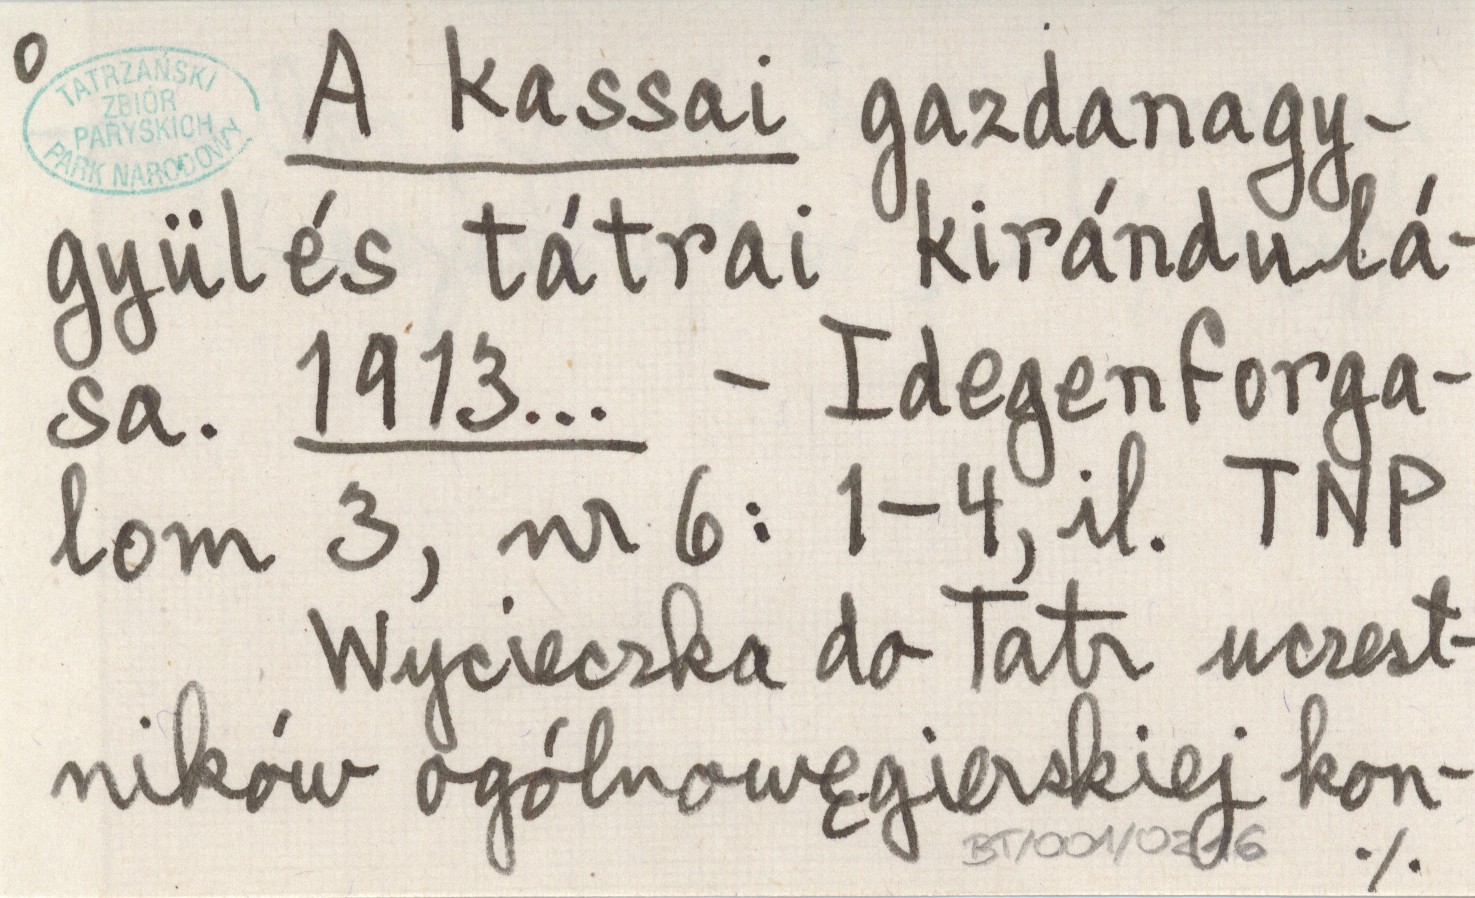 0
TATRZAŃSKI
ZBIÓR
PARYSKICH
PARK NARODOWY
A kassai gazdanagy-
gyülés tátrai kirándulá-
sa. 1913... - Idegenforga-
lom 3, nr 6: 1-4, il. TNP
Wycieczka do Tatr uczest-
ników ogólnowęgierskiej kon-
BT/001/0216
./.